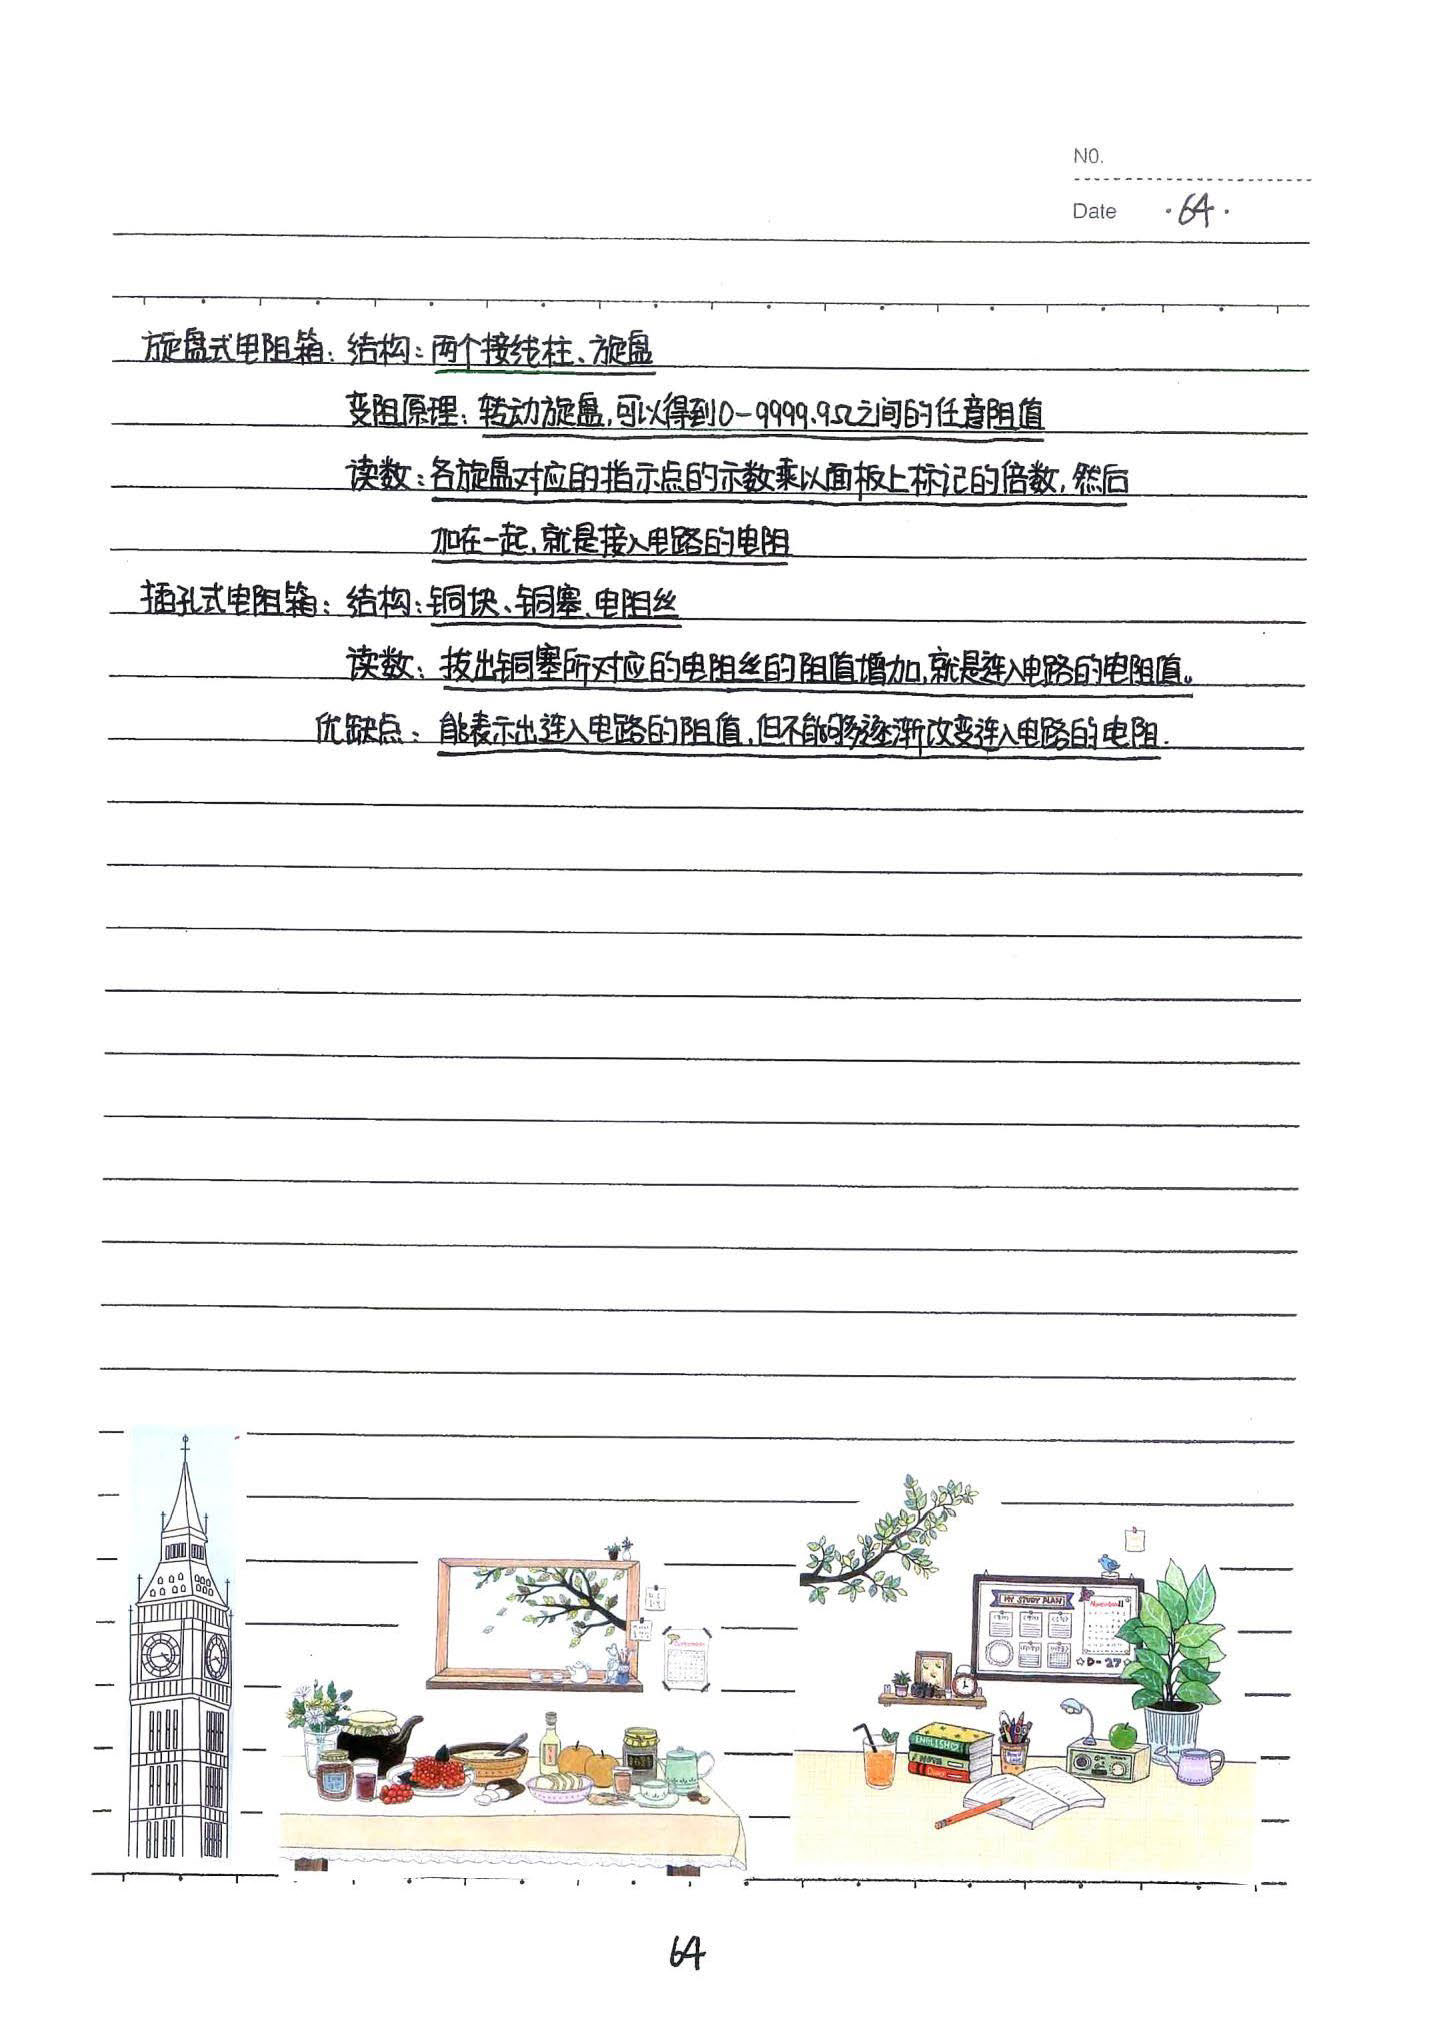 NO.
Date ·64·
旋盘式电阻箱：结构：两个接线柱、旋盘
变阻原理：转动旋盘，可以得到0-9999.9Ω之间的任意阻值
读数：各旋盘对应的指示点的示数乘以面板上标记的倍数，然后
加在一起，就是接入电路的电阻
插孔式电阻箱：结构：铜块、铜塞、电阻丝
读数：拔出铜塞所对应的电阻丝的阻值增加，就是连入电路的电阻值。
优缺点：能表示出连入电路的阻值，但不能够逐渐改变连入电路的电阻.
MY STUDY PLAN
November 11
D-27
ENGLISH
64